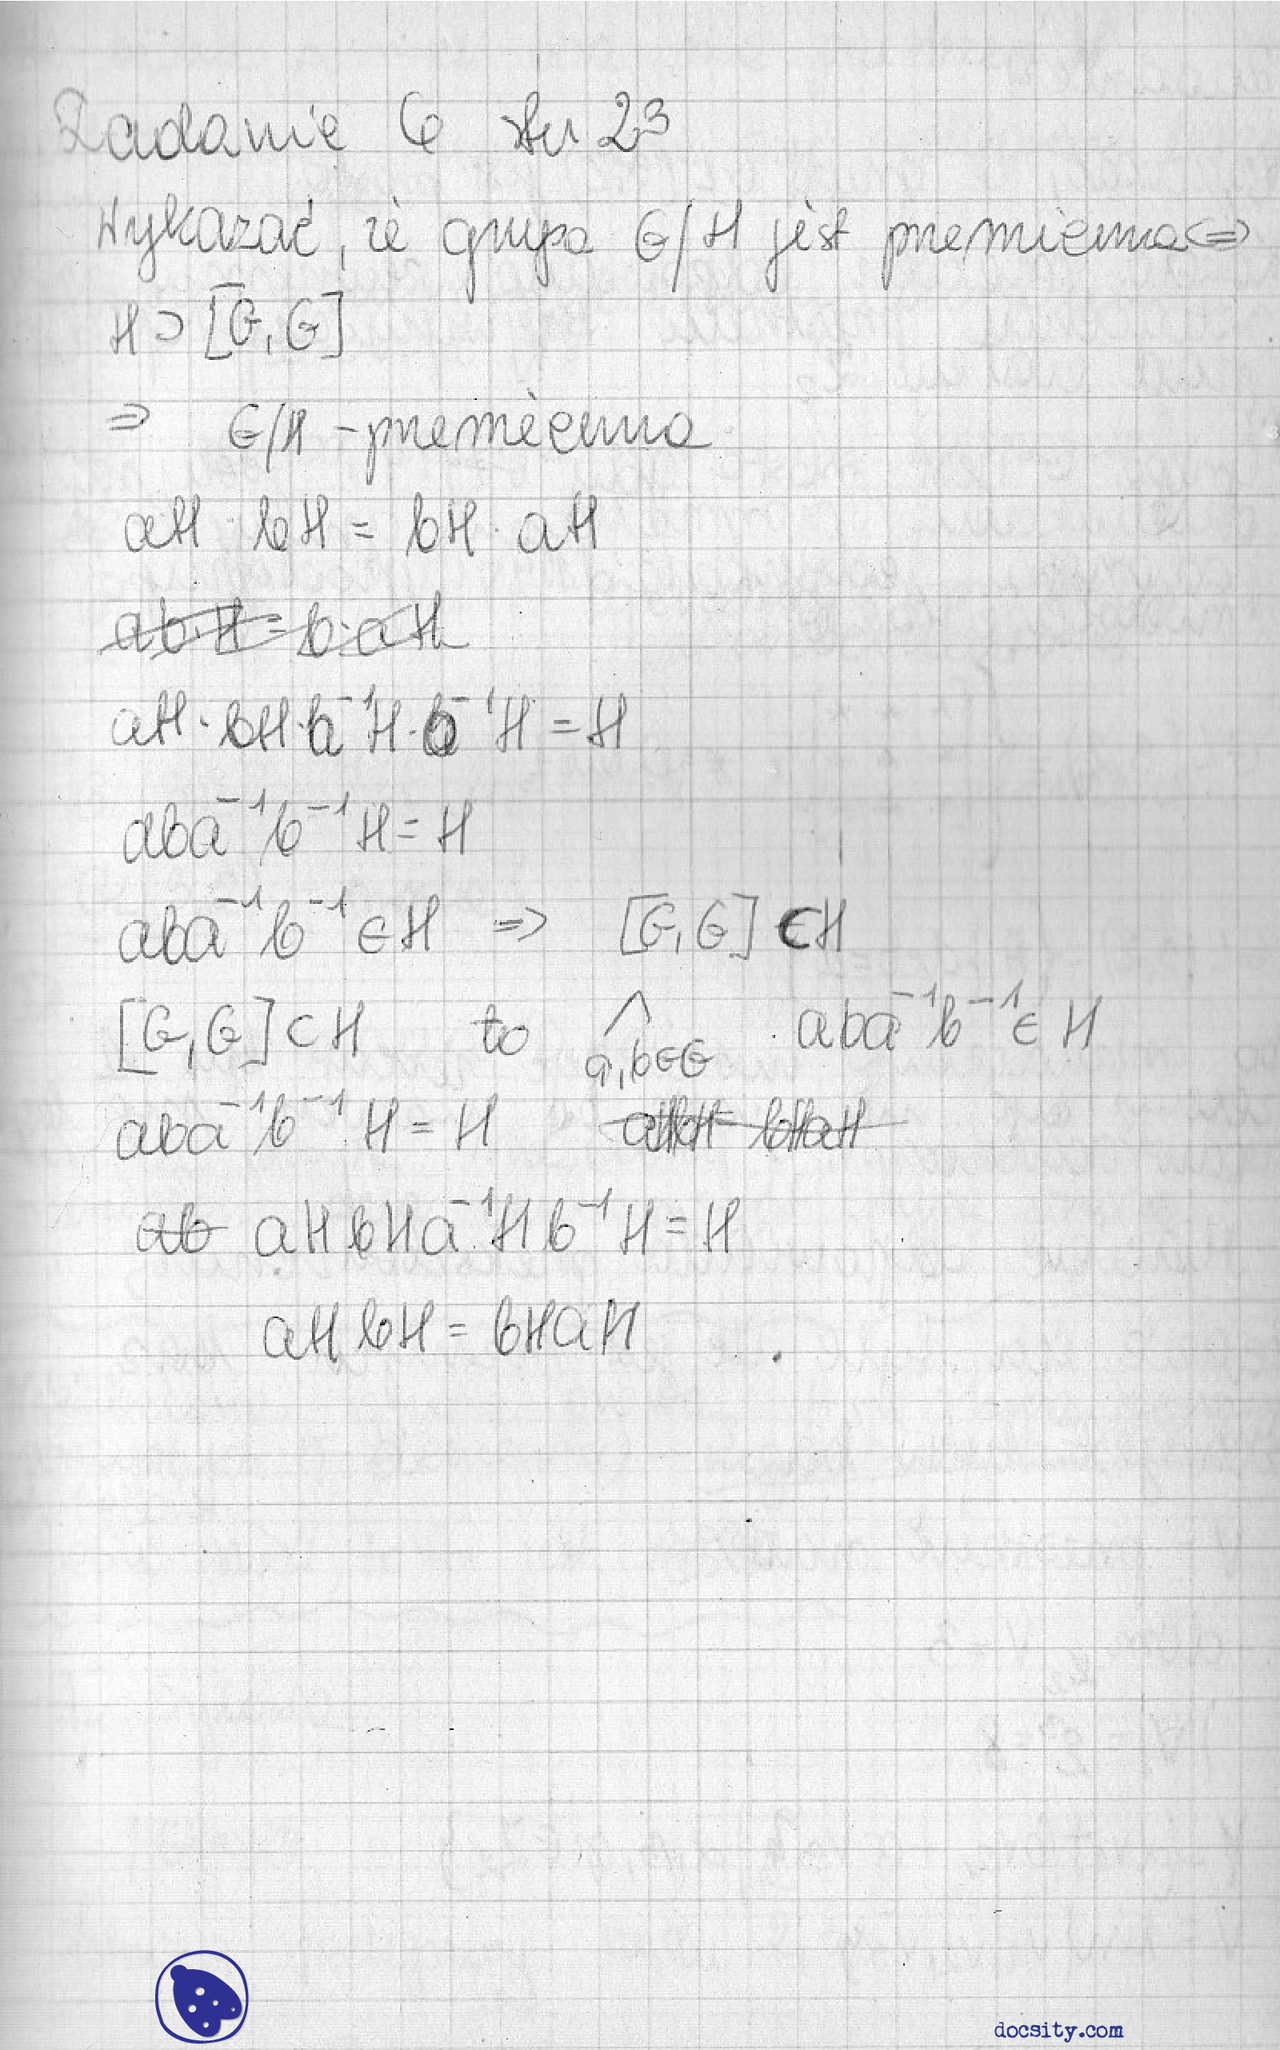 Zadanie 6 str 23
Wykazać, że grupa G/H jest przemienna ⇔
H ⊃ [G,G]
⇒ G/H - przemienna
aH · bH = bH · aH
ab·H = b·aH
aH · bH · a⁻¹H · b⁻¹H = H
aba⁻¹b⁻¹H = H
aba⁻¹b⁻¹ ∈ H ⇒ [G,G] ⊂ H
[G,G] ⊂ H to ⋀ a,b∈G aba⁻¹b⁻¹ ∈ H
aba⁻¹b⁻¹ H = H aHbH = bHaH
ab aH bH a⁻¹H b⁻¹H = H
aH bH = bH aH
docsity.com